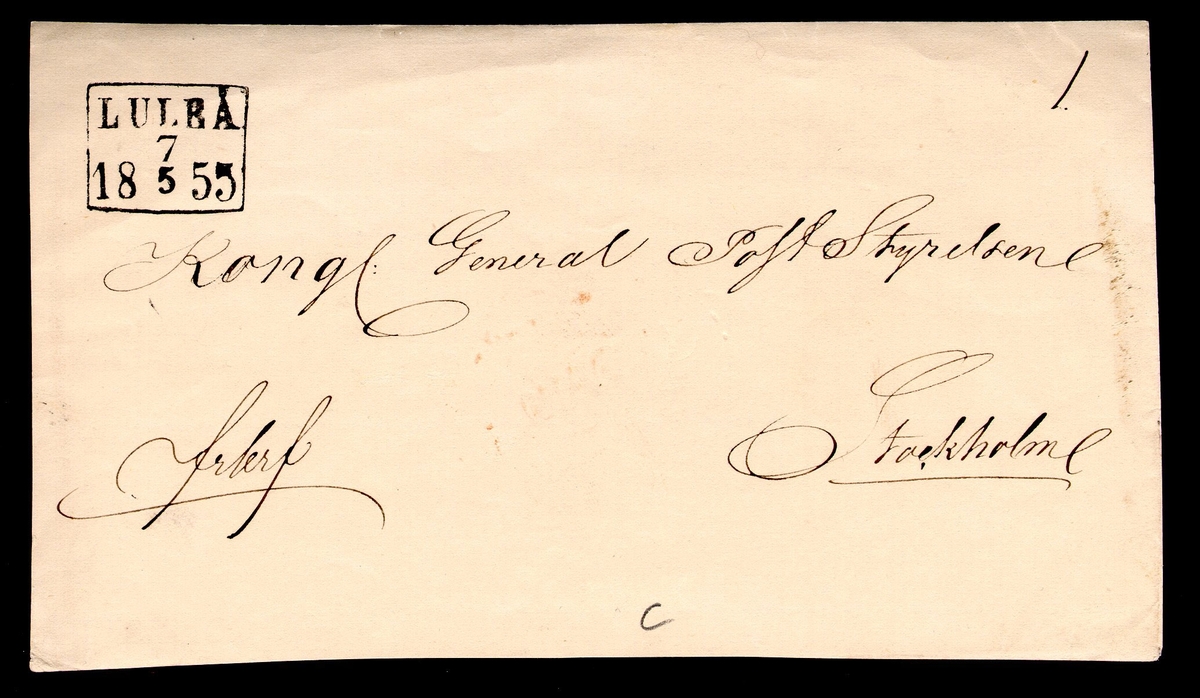 1.
LULEÅ
7
18 5 55
Kongl: General Post Styrelsen
frbrf
Stockholm
C